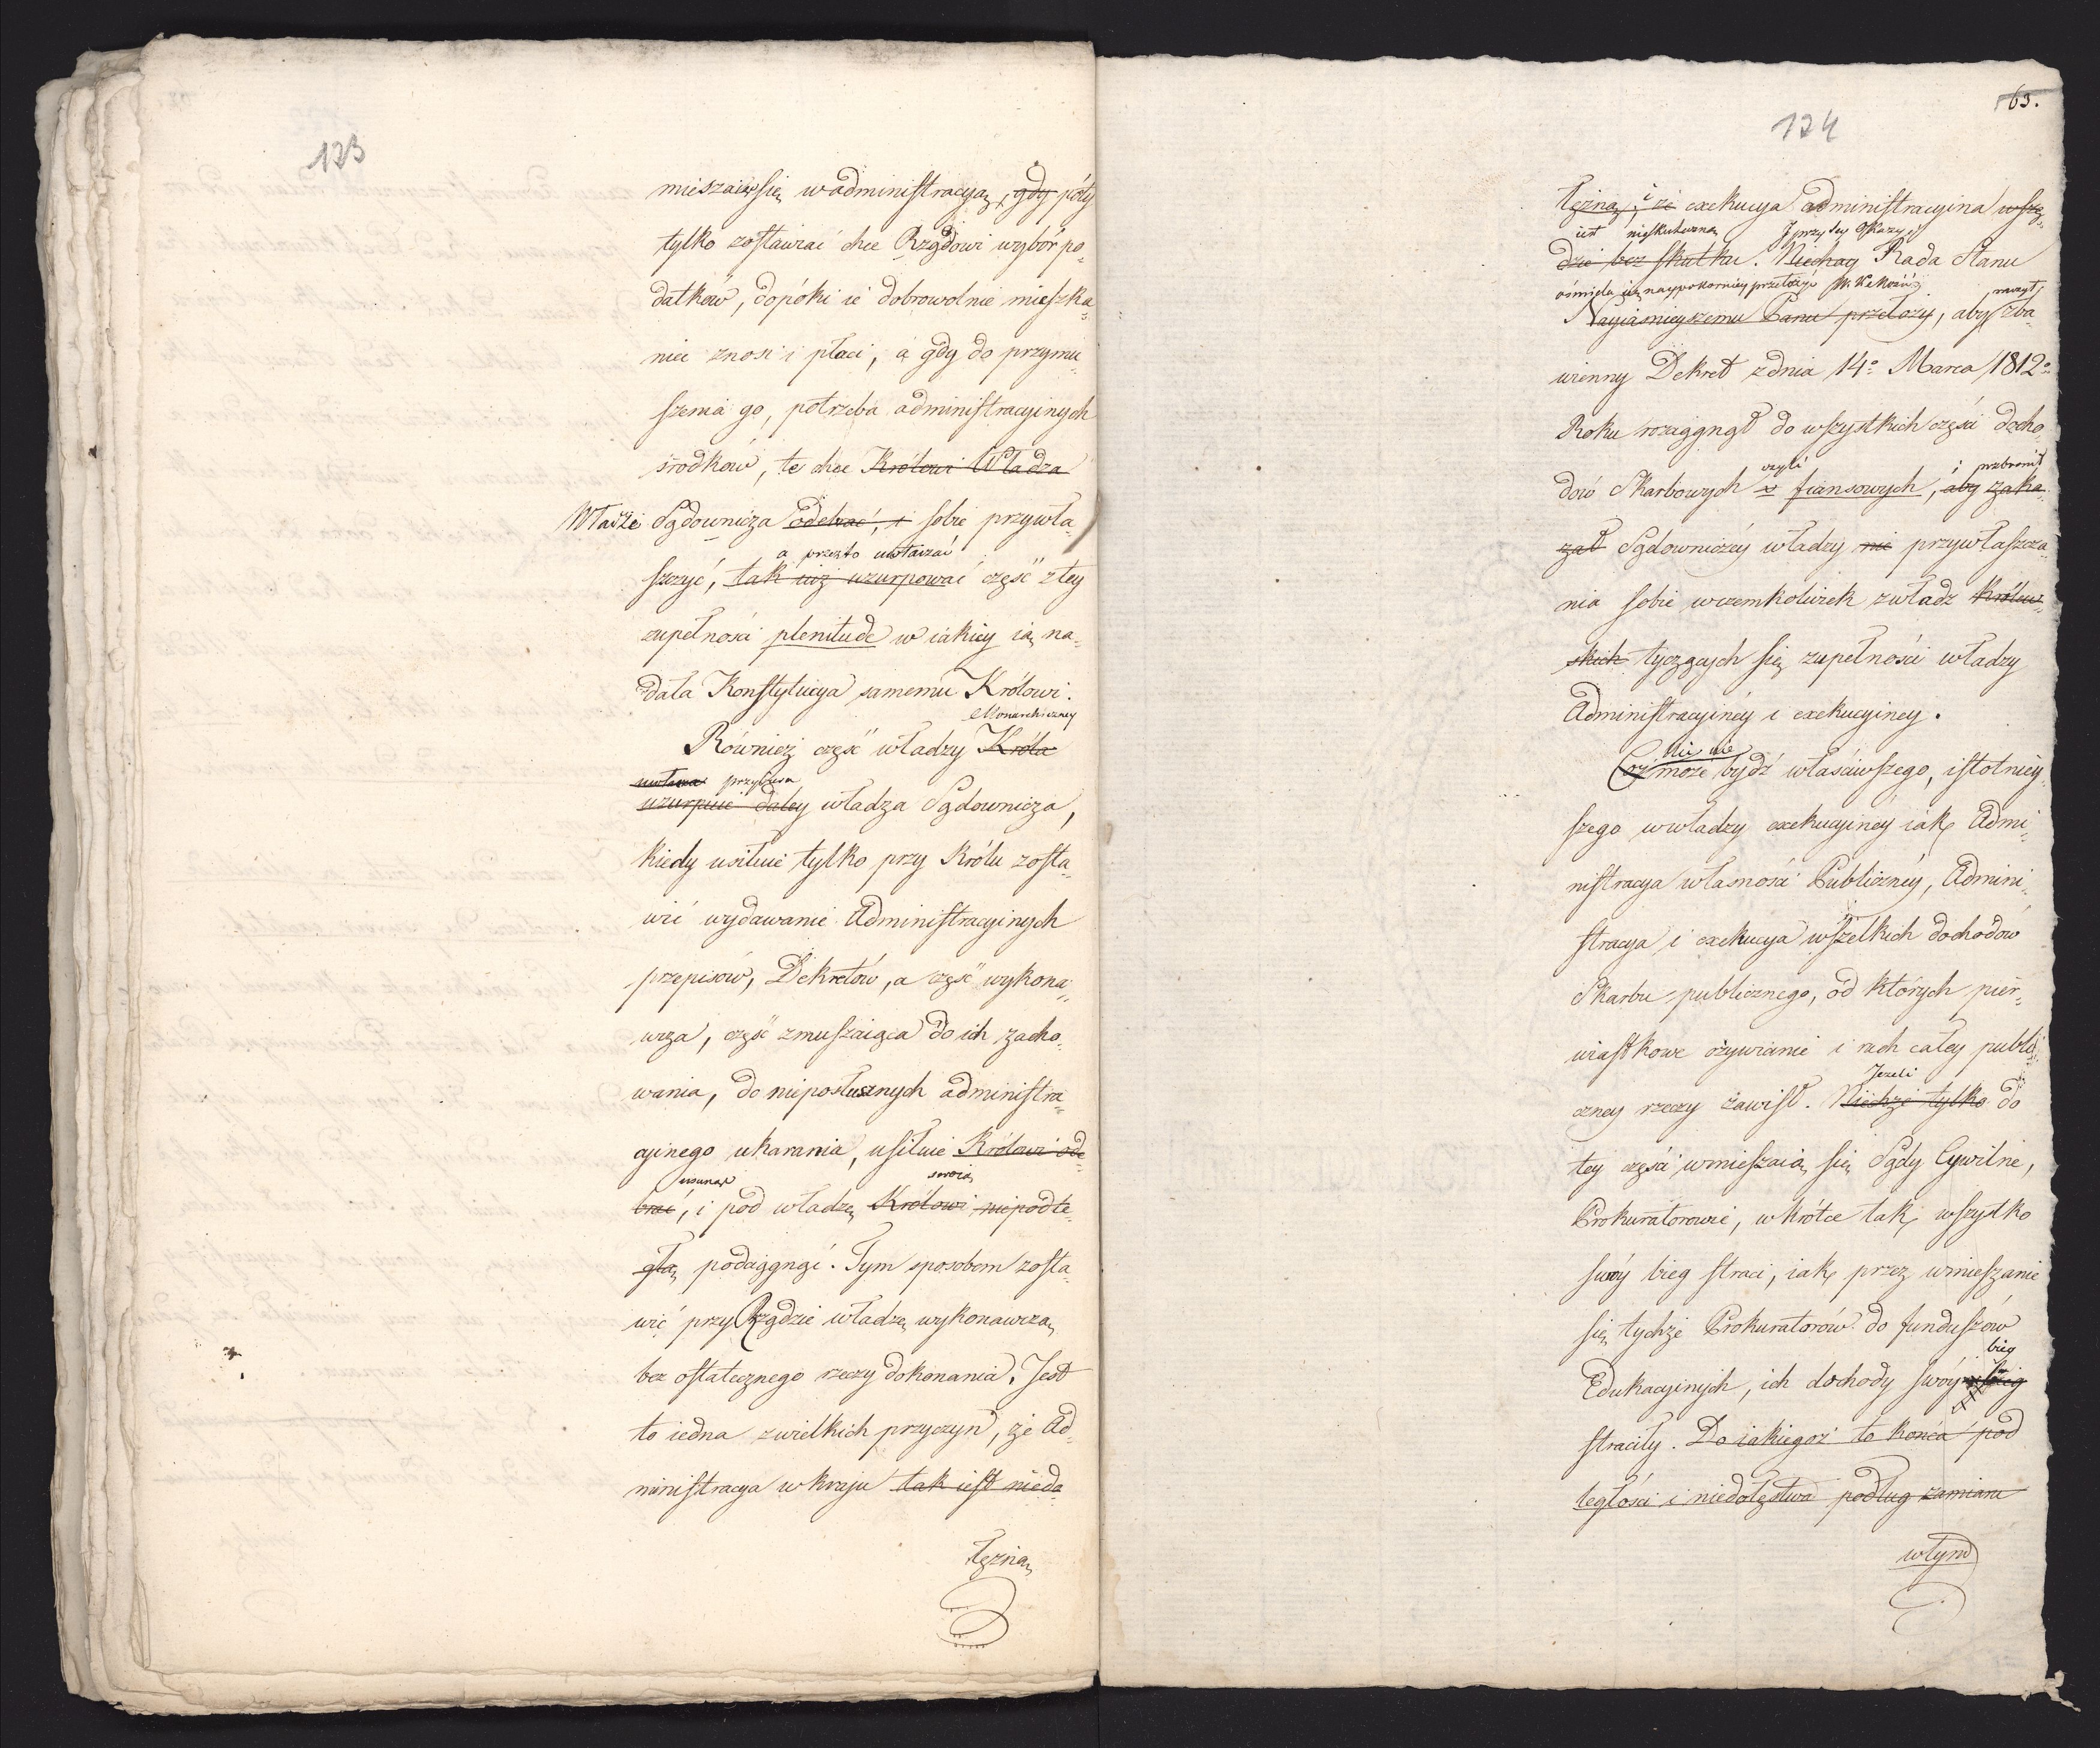 123
mieszaiąc się w administracyą, gdy póty
tylko zostawiać chce Rządowi wybór po„
datków, dopóki ie dobrowolnie mieszka„
niec znosi i płaci, a gdy do przymu„
szenia go, potrzeba administracyinych
środków, te chce Królowi Władza
Władzi Sądownicza odebrać, i sobie przywła„
a przezto uwłaczać
szczyć, tak iuż uzurpować część z tey
zupełności plenitude w iakiey ią na„
dała Konstytucya samemu Królowi.
Monarchiczney
Również część władzy Króla
uwłacza przybiera
uzurpuie daley władza Sądownicza,
kiedy usiłuie tylko przy Królu zosta„
wić wydawanie Administracyinych
przepisów, Dekretów, a część wykona„
wcza, część zmuszaiąca do ich zacho„
wania, do nieposłusznych administra„
cyinego ukarania, usiłuie Królowi ode„
usunąć swoią
brać, i pod władzę Królowi niepodle„
głą podciągnąć. Tym sposobem zosta„
wić przy Rządzie władzę wykonawczą,
bez ostatecznego rzeczy dokonania. Jest
to iedna z wielkich przyczyn, że Ad„
ministracya w kraju tak iest nieda„
łężna
63.
124
łężna, i że exekucya administracyina wszę„
iest nieskuteczna, przy tey Okazyi
dzie bez skutku. Niechay Rada Stanu
ośmiela się naypokorniey przełożyć W. K. Mości raczył
Nayiaśnieyszemu Panu przełoży, aby zba„
wienny Dekret z dnia 14º Marca 1812º
Roku rozciągnął do wszystkich części docho„
czyli i zabronił
dów Skarbowych finansowych, aby zaka„
zał Sądowniczéy władzy nie przywłaszcza„
nia sobie w czemkolwiek z władz Królew„
skich tyczących się zupełności władzy
Administracyinéy i exekucyiney.
Nic nie
Cóż może bydź właściwszego, istotniey„
szego w władzy exekucyinéy iak Admi„
nistracya własności Publicznéy, Admini„
stracya i exekucya wszelkich dochodów
Skarbu publicznego, od których pier„
wiastkowe ożywienie i ruch całey publi„
Jeżeli
czney rzeczy zawisł. Niechże tylko do
tey części wmieszaią się Sądy Cywilne,
Prokuratorowie, wkrótce tak wszystko
swóy bieg straci, iak przez wmieszanie
się tychże Prokuratorów do funduszów
bieg
Edukacyinych, ich dochody swóy
straciły. Do iakiegoż to końca pod
ległości i niedołęstwa podług zamiaru
w tym